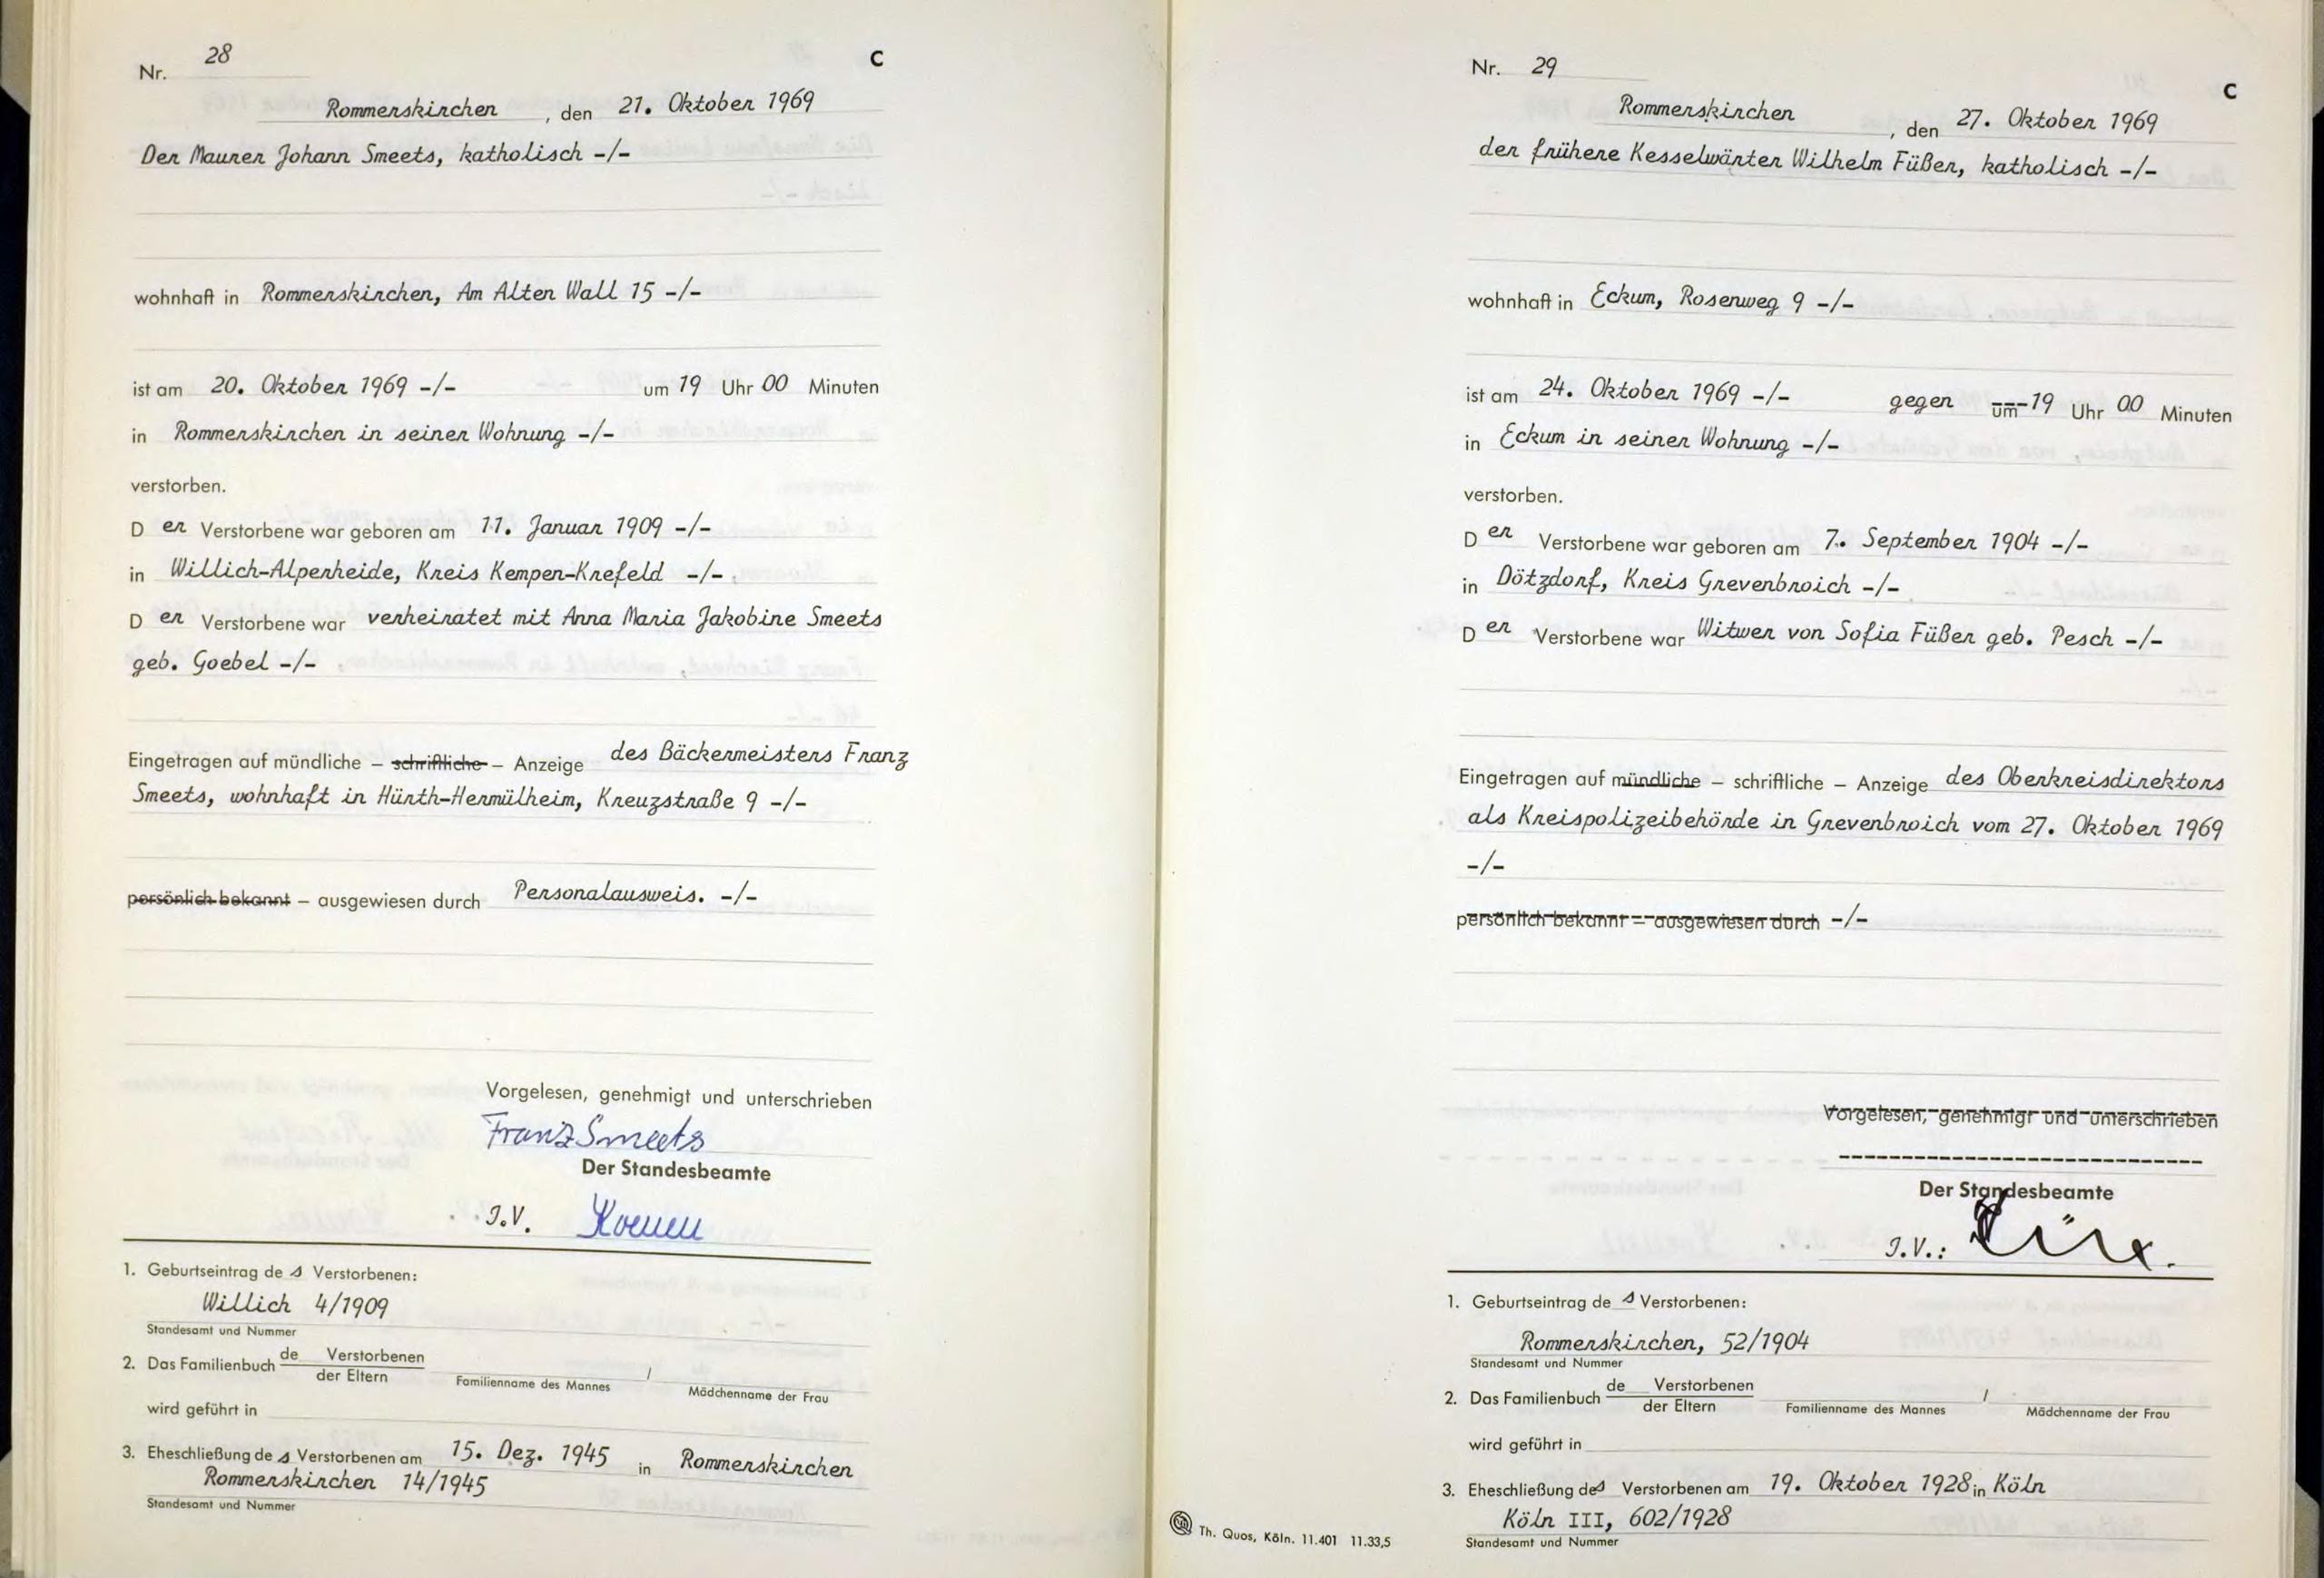 Nr. 28
C
Rommerskirchen, den 21. Oktober 1969
Der Maurer Johann Smeets, katholisch -/-
wohnhaft in Rommerskirchen, Am Alten Wall 15 -/-
ist am 20. Oktober 1969 -/- um 19 Uhr 00 Minuten
in Rommerskirchen in seiner Wohnung -/-
verstorben.
D er Verstorbene war geboren am 11. Januar 1909 -/-
in Willich-Alperheide, Kreis Kempen-Krefeld -/-
D er Verstorbene war verheiratet mit Anna Maria Jakobine Smeets
geb. Goebel -/-
Eingetragen auf mündliche – schriftliche – Anzeige des Bäckermeisters Franz
Smeets, wohnhaft in Hürth-Hermülheim, Kreuzstraße 9 -/-
persönlich bekannt – ausgewiesen durch Personalausweis. -/-
Vorgelesen, genehmigt und unterschrieben
Franz Smeets
Der Standesbeamte
J.V. Koenen
1. Geburtseintrag de s Verstorbenen:
Willich 4/1909
Standesamt und Nummer
2. Das Familienbuch de Verstorbenen
der Eltern
Familienname des Mannes / Mädchenname der Frau
wird geführt in
3. Eheschließung de s Verstorbenen am 15. Dez. 1945 in Rommerskirchen
Rommerskirchen 14/1945
Standesamt und Nummer
Nr. 29
C
Rommerskirchen, den 27. Oktober 1969
der frühere Kesselwärter Wilhelm Füßer, katholisch -/-
wohnhaft in Eckum, Rosenweg 9 -/-
ist am 24. Oktober 1969 -/- gegen um 19 Uhr 00 Minuten
in Eckum in seiner Wohnung -/-
verstorben.
D er Verstorbene war geboren am 7. September 1904 -/-
in Dötzdorf, Kreis Grevenbroich -/-
D er Verstorbene war Witwer von Sofia Füßer geb. Pesch -/-
Eingetragen auf mündliche – schriftliche – Anzeige des Oberkreisdirektors
als Kreispolizeibehörde in Grevenbroich vom 27. Oktober 1969
-/-
persönlich bekannt – ausgewiesen durch -/-
Vorgelesen, genehmigt und unterschrieben
Der Standesbeamte
J.V.:
1. Geburtseintrag de s Verstorbenen:
Rommerskirchen, 52/1904
Standesamt und Nummer
2. Das Familienbuch de Verstorbenen
der Eltern
Familienname des Mannes / Mädchenname der Frau
wird geführt in
3. Eheschließung des Verstorbenen am 19. Oktober 1928 in Köln
Köln III, 602/1928
Standesamt und Nummer
Th. Quos, Köln. 11.401 11.33,5